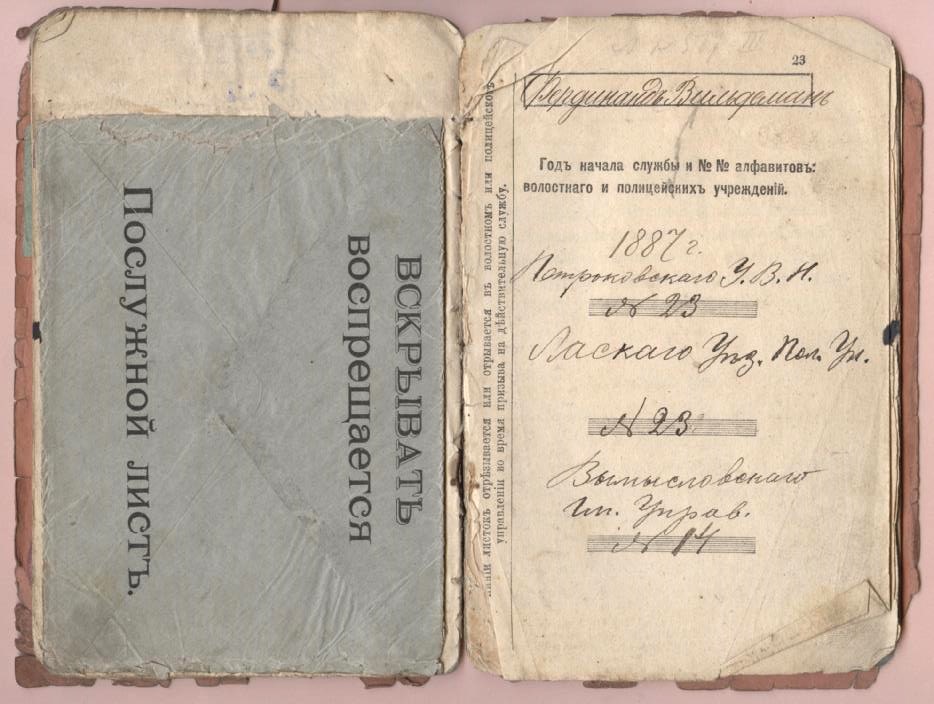 Послужной листъ.
ВСКРЫВАТЬ
воспрещается
листокъ отрѣзывается или отрывается въ волостномъ или полицейскомъ
управленіи во время призыва на дѣйствительную службу.
23
Фердинандъ Вильдеманъ
Годъ начала службы и №№ алфавитовъ:
волостнаго и полицейскихъ учрежденій.
1887 г.
Петроковскаго У. В. Н.
№ 23
Ласкаго Уѣз. Пол. Уп.
№ 23
Вымысловскаго
Гм. Управ.
№ 14